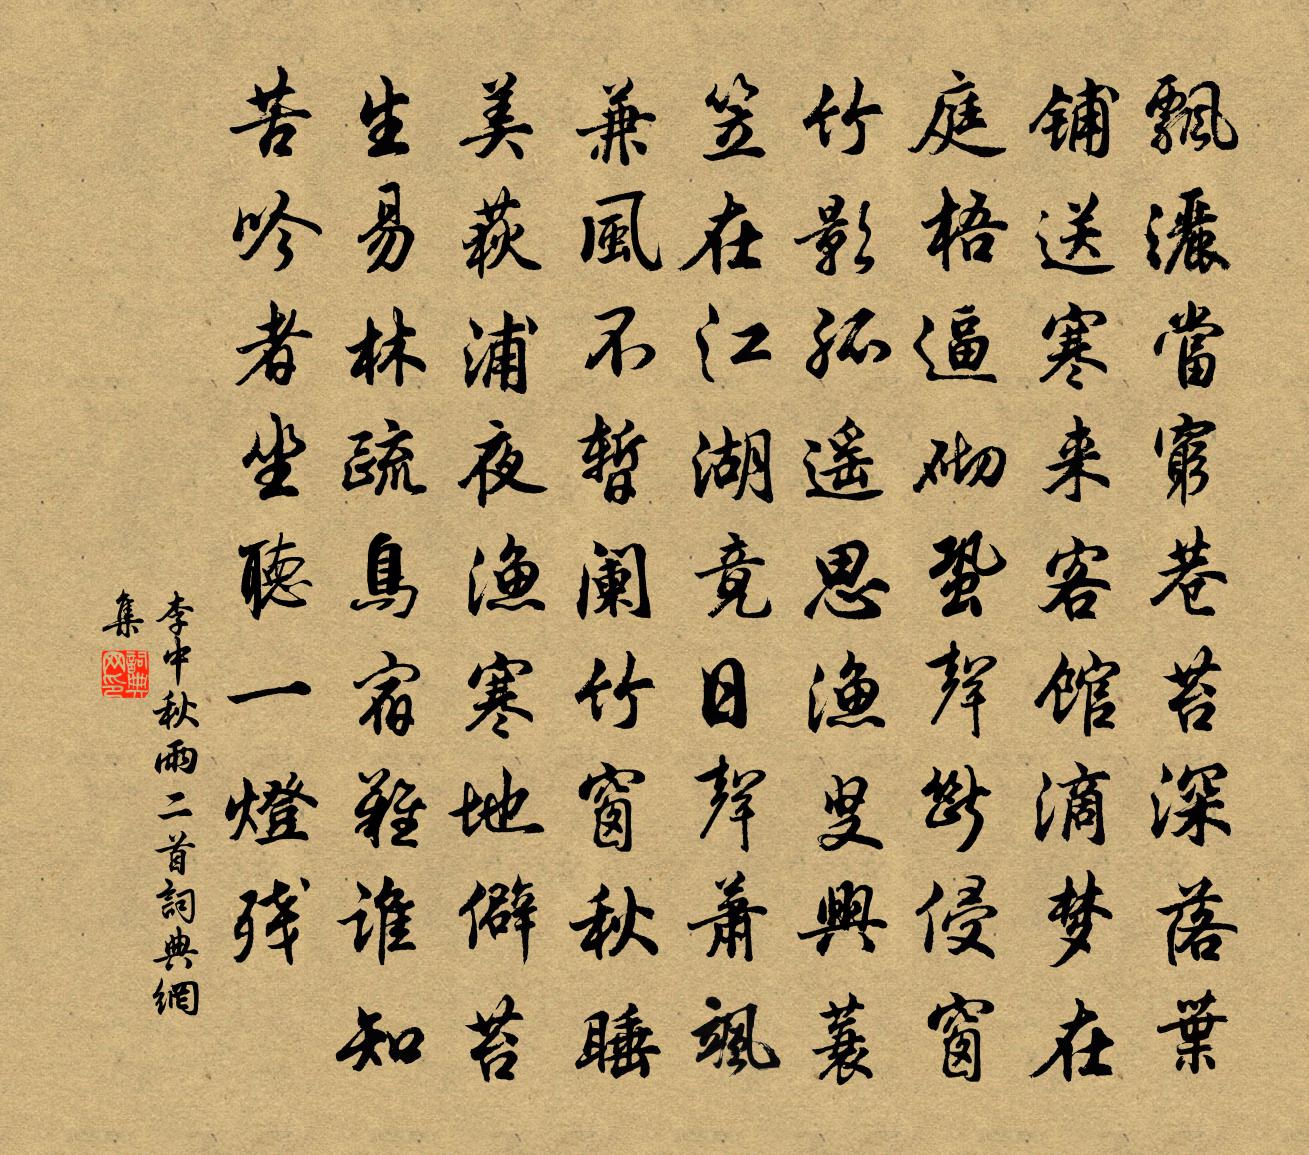 飄灑當窮巷苔深落葉
鋪送寒来客館滴梦在
庭梧逼砌蛩聲斷侵窗
竹影孤遥思漁叟興蓑
笠在江湖竟日聲蕭颯
兼風不暫闌竹窗秋睡
美荻浦夜漁寒地僻苔
生易林疏鳥宿難誰知
苦吟者坐聽一燈残
李中秋雨二首詞典網
集
詞典
网印